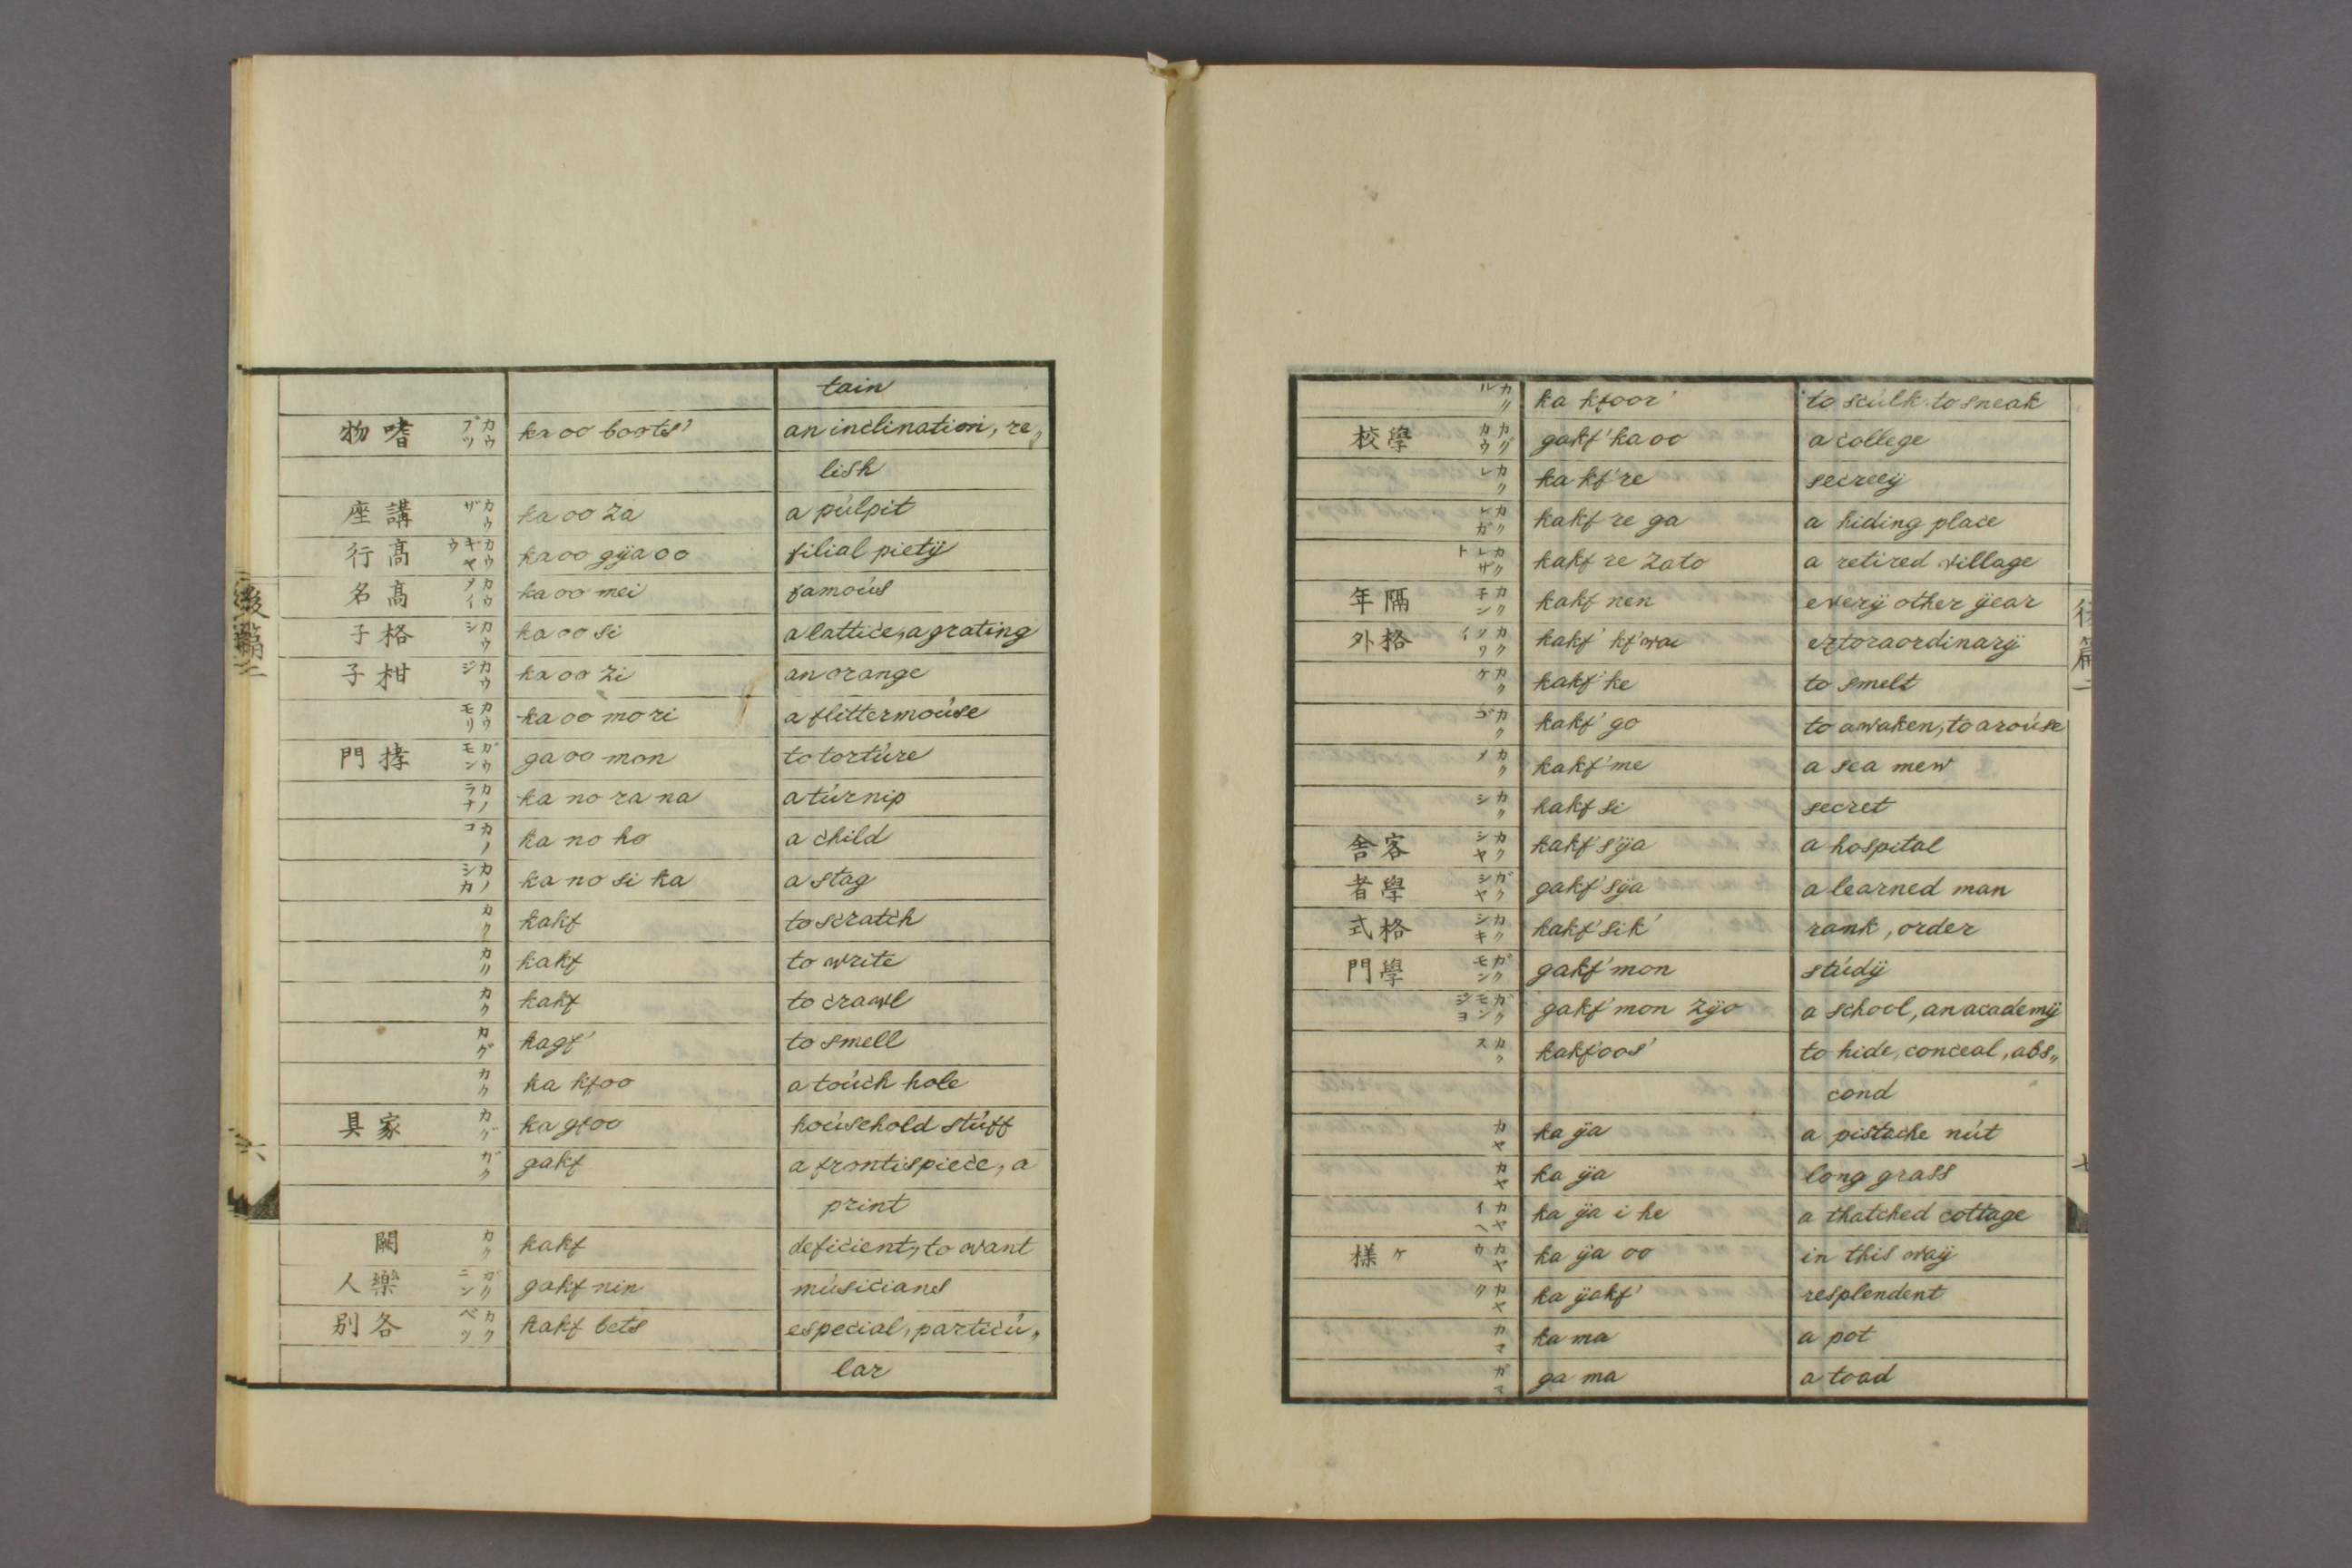 tain
物嗜 カウブツ ka oo boots' an inclination, re„
lish
座講 カウザ ka oo za a púlpit
行髙 カウギヤウ ka oo gÿa oo filial pietÿ
名髙 カウメイ ka oo mei famoús
子格 カウシ ka oo si a lattice, a grating
子柑 カウジ ka oo zi an orange
カウモリ ka oo mo ri a flittermoúse
門拷 ガウモン ga oo mon to tortúre
カノラナ ka no ra na a túrnip
カノコ ka no ko a child
カノシカ ka no si ka a stag
カク kakf to scratch
カク kakf to write
カク kakf to crawl
カグ kagf' to smell
カク ka kfoo a toúch hole
具家 カグ ka gfoo hoúsehold stúff
ガク gakf a frontispiece, a
print
闕 カク kakf deficient, to want
人樂 ガクニン gakf nin músicians
別各 カクベツ kakf bets especial, particú„
lar
後篇二
カクル ka kfoor' to scúlk. to sneak
校學 カグカウ gakf' ka oo a college
カクレ ka kf're secrecÿ
カクレガ kakf re ga a hiding place
カクレザト kakf re zato a retired village
年隔 カク子ン kakf nen everÿ other ÿear
外格 カククワイ kakf' kf'wai extoraordinarÿ
カクケ kakf' ke to smelt
カクゴ kakf' go to awaken, to aroúse
カクメ kakf'me a sea mew
カクシ kakf si secret
舎客 カクシヤ kakf' sÿa a hospital
者學 ガクシヤ gakf' sÿa a learned man
式格 カクシキ kakf' sik' rank, order
門學 ガクモン gakf' mon stúdÿ
ガクモンジヨ gakf' mon zÿo a school, an academÿ
カクス kakf'oos' to hide, conceal, abs„
cond
カヤ ka ÿa a pistache nút
カヤ ka ÿa long grass
カヤイヘ ka ÿa i he a thatched cottage
様ケ カヤウ ka ÿa oo in this waÿ
カヤク ka ÿakf' resplendent
カマ ka ma a pot
ガマ ga ma a toad
後篇二
七